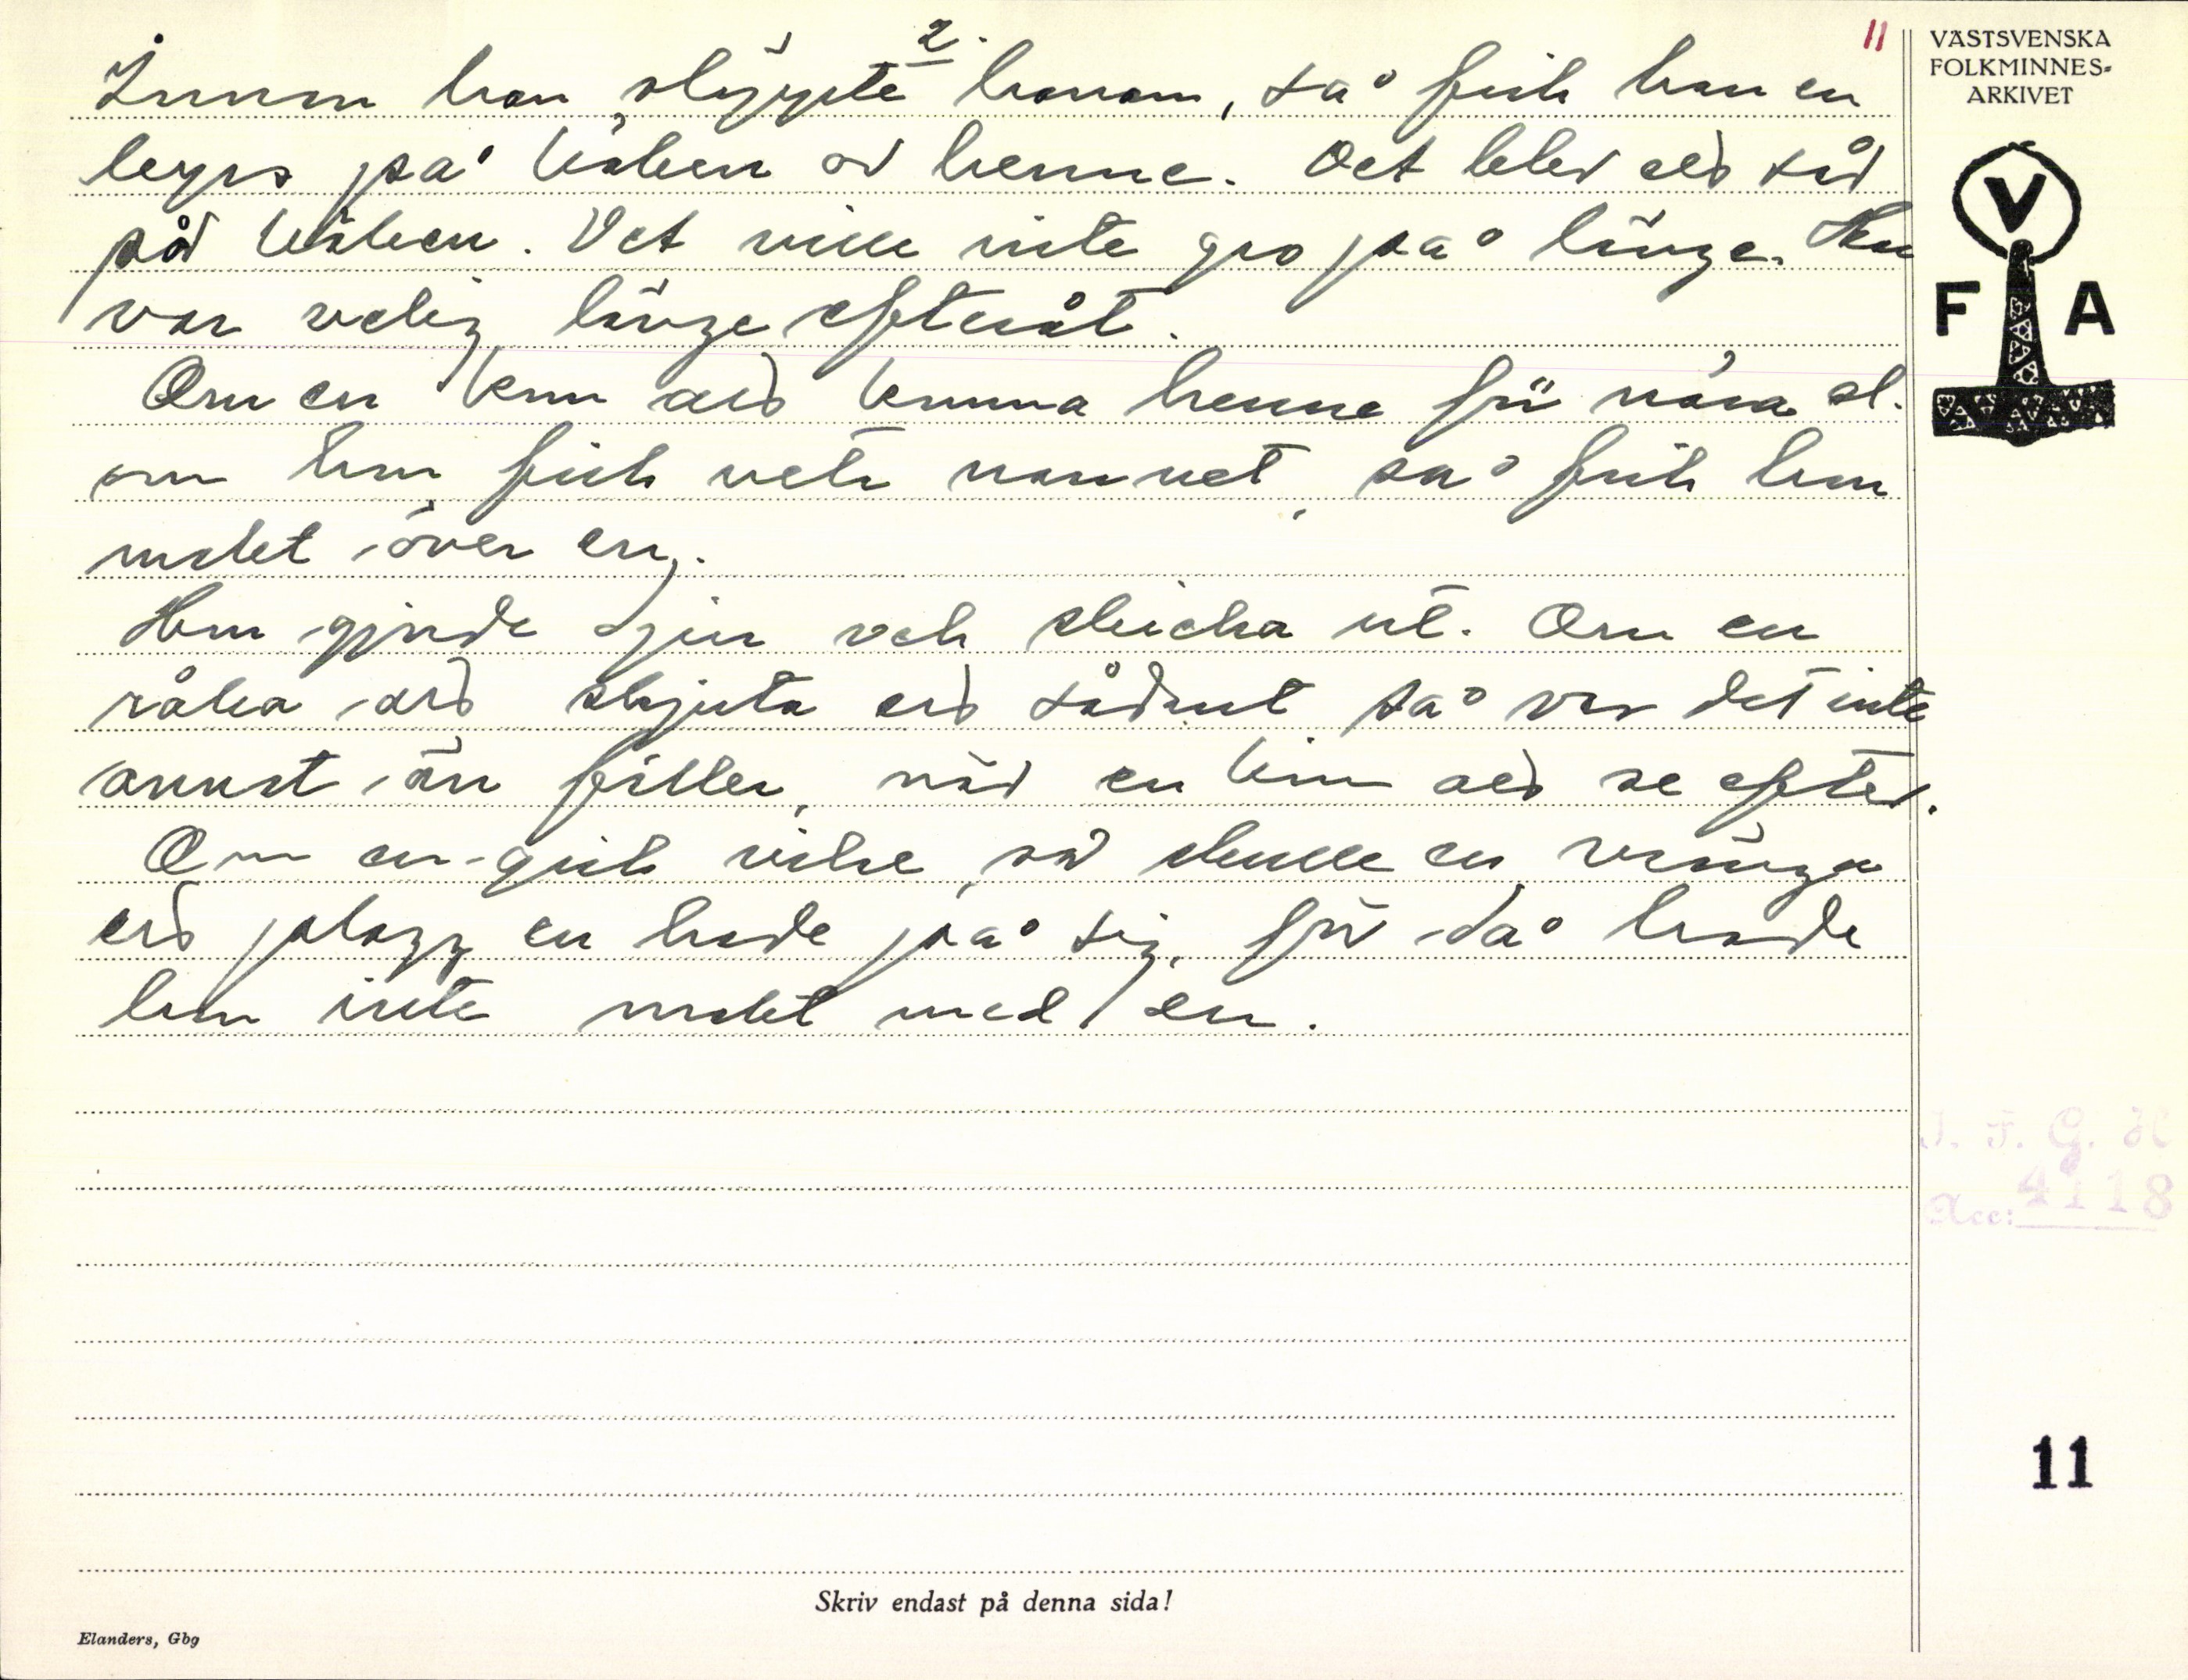 2.
11
Innan han släppte honom, så fick han en
leyps på haken av henne. Det blev ed sår
på haken. Det ville inte gro på länge. Han
var velig länge efteråt.
Om en kom aed komma henne för nära el.
om hon fick veta namnet, så fick hon
maket över en.
Hon gjorde djur och skicka ut. Om en
råka aed skjuta ed sådant så var det inte
annat än filler, när en kom aed se efter.
Om en gick vilse, så skulle en vränga
ed plagg en hade på sig, för då hade
hon inte maket med en.
VÄSTSVENSKA
FOLKMINNES-
ARKIVET
V
F A
I. F. G. H
Acc: 4118
11
Skriv endast på denna sida!
Elanders, Gbg